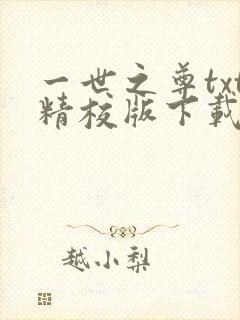 一世之尊txt
精校版下载
越小梨